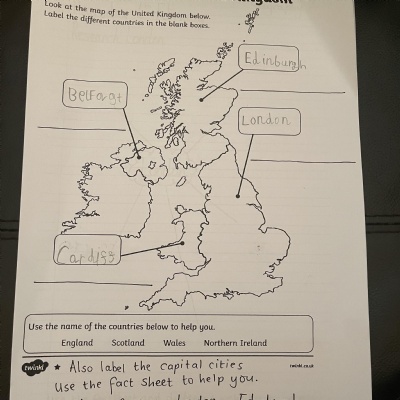 Look at the map of the United Kingdom below.
Label the different countries in the blank boxes.
Edinburgh
Belfast
London
Cardiff
Use the name of the countries below to help you.
England Scotland Wales Northern Ireland
twinkl
twinkl.co.uk
* Also label the capital cities
Use the fact sheet to help you.